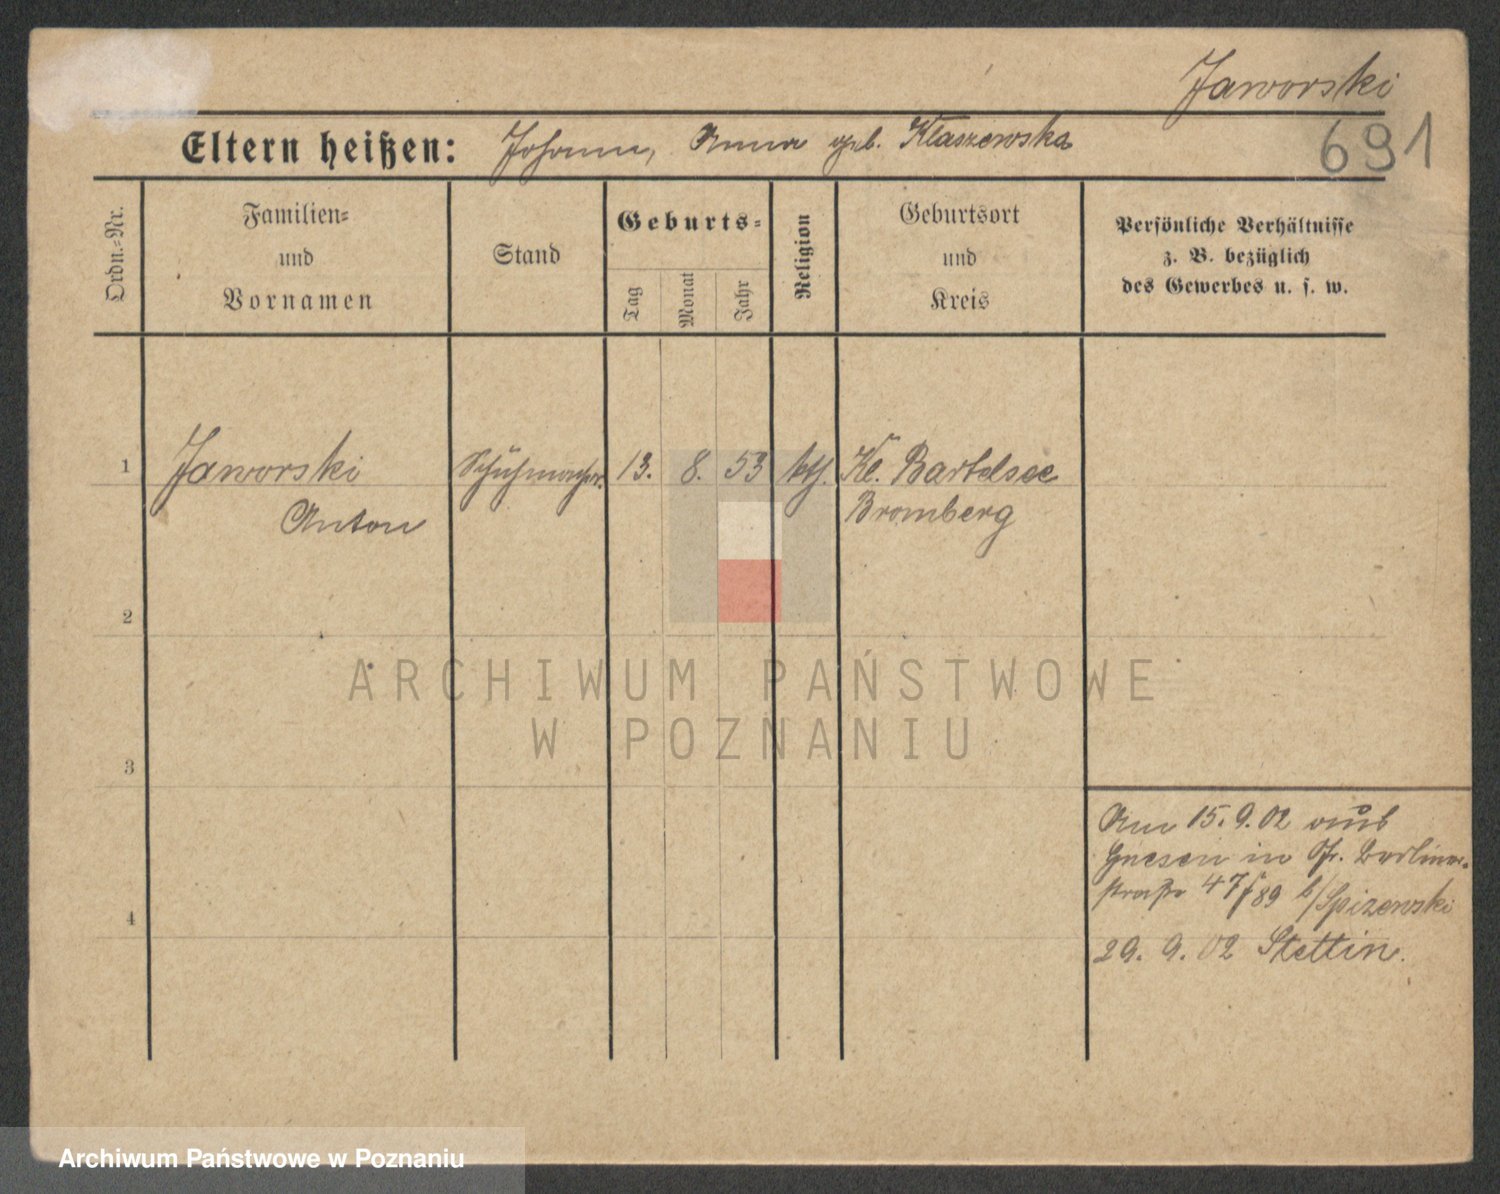 Jaworski
691
Eltern heißen: Johann, Anna geb. Klaszewska
Ordn.-Nr.
Familien-
und
Vornamen
Stand
Geburts-
Tag
Monat
Jahr
Religion
Geburtsort
und
Kreis
Persönliche Verhältnisse
z. B. bezüglich
des Gewerbes u. s. w.
1 Jaworski Schuhmacher 13. 8. 53 kth. Kl. Bartelsee
Anton Bromberg
2
3
4
ARCHIWUM PAŃSTWOWE
W POZNANIU
Am 15.9.02 aus
Gnesen in Berliner-
straße 47/89 b/Spizewski
29. 9. 02 Stettin.
Archiwum Państwowe w Poznaniu